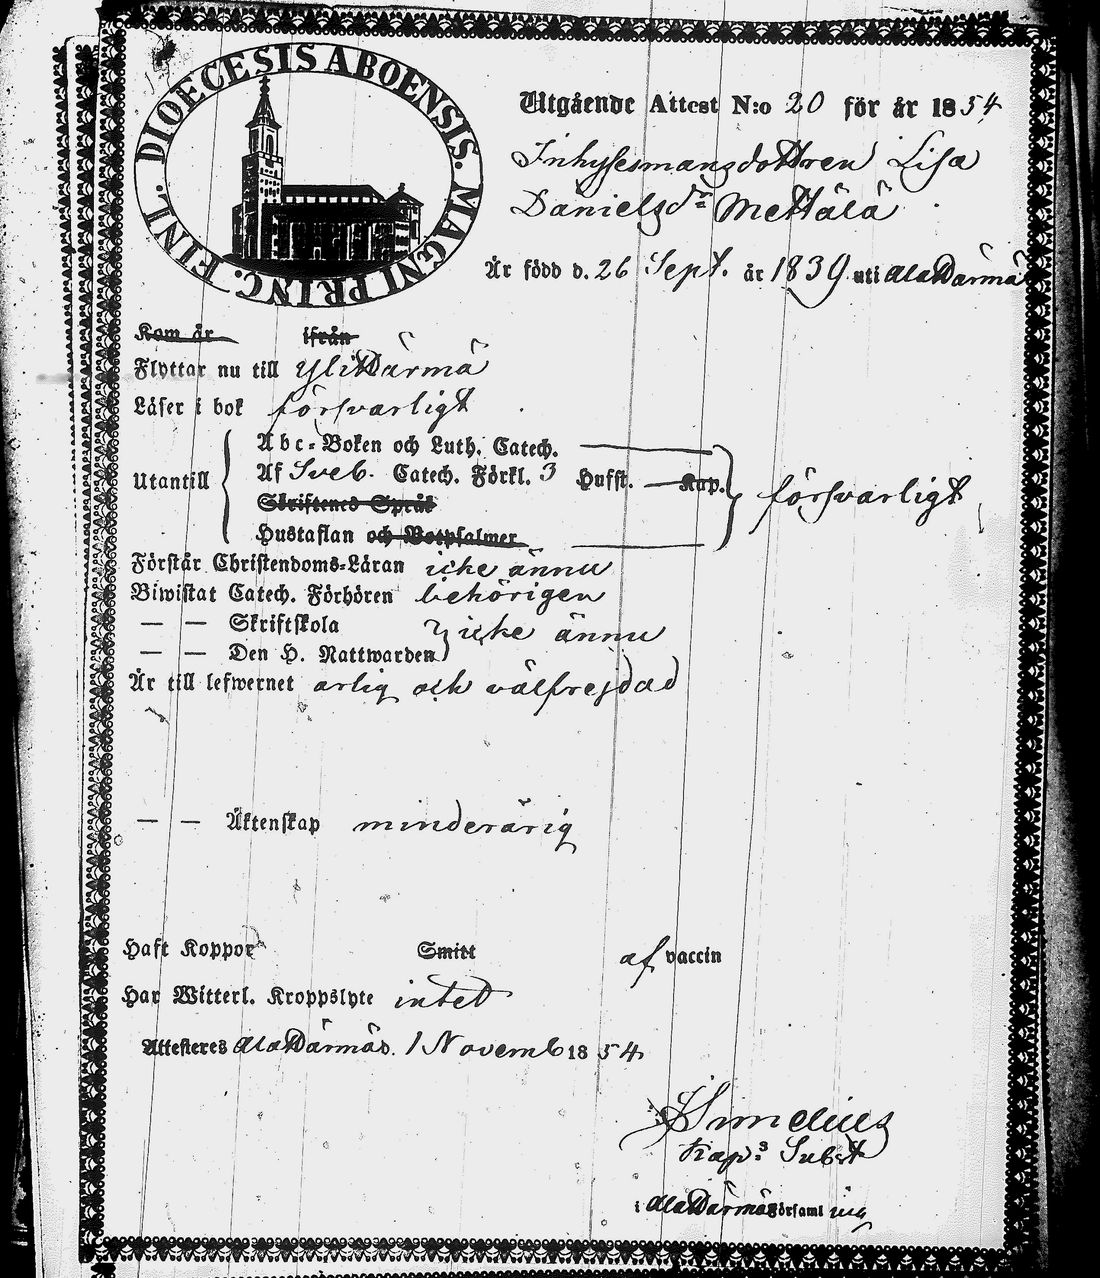 DIOECESIS ABOENSIS. MAGNI PRINC. FINL.
Utgående Attest N:o 20 för år 1854
Inhysesmansdottren Lisa
Danielsdr Mettälä
Är född d. 26 Sept. år 1839 uti AlaHärmä
Kom år ifrån
Flyttar nu till YliHärmä
Läser i bok försvarligt
Abc-Boken och Luth. Catech.
Utantill Af Sveb. Catech. Förkl. 3 Hufst. Kap. försvarligt
Skriftenes Språk
Hustaflan och Botpsalmer
Förstår Christendoms-Läran icke ännu
Biwistat Catech. Förhören behörigen
— — Skriftskola icke ännu
— — Den H. Nattwarden
Är till lefwernet ärlig och välfrejdad
— — Äktenskap minderårig
Haft Koppor Smitt af vaccin
Har Witterl. Kroppslyte intet
Attesteres AlaHärmä d. 1 Novemb 1854
Kap:s Subst
i AlaHärmä Församling